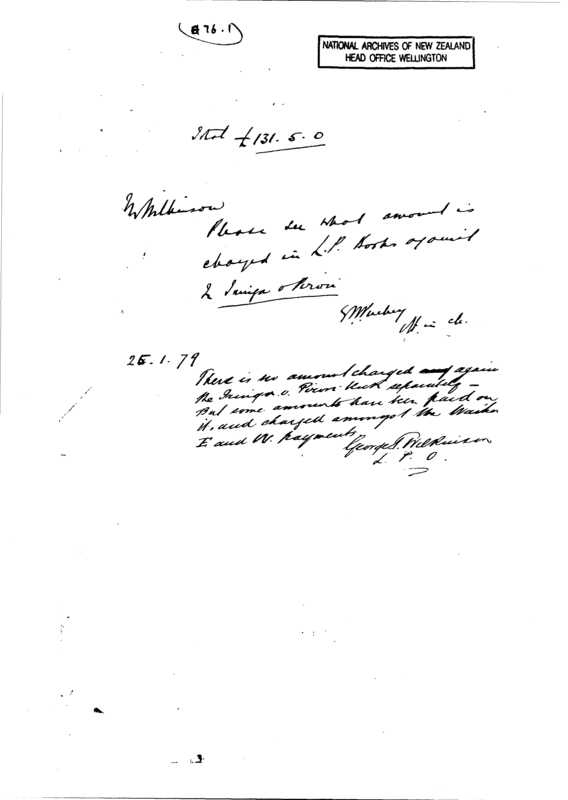 (76.1)
NATIONAL ARCHIVES OF NEW ZEALAND
HEAD OFFICE WELLINGTON
Total £131.5.0
Mr Wilkinson
Please see what amount is
charged in L.P. Books against
Iringa o Piroi
in ch.
25.1.79
There is no amount charged again
the Iringa o Piroi block separately –
But some amounts have been paid on
it, and charged amongst the Waihou
E and W. payments.
George T. Wilkinson
L. P. O.